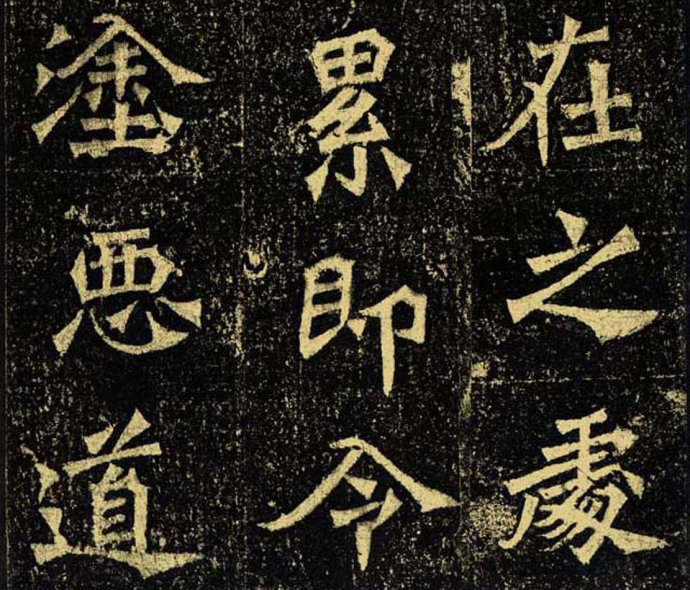 在之處
累即令
塗惡道